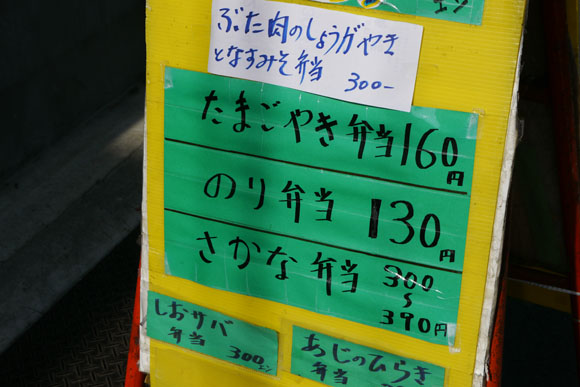 ぶた肉のしょうがやき
となすみそ弁当 300-
たまごやき弁当 160円
のり弁当 130円
さかな弁当 300
〜
390円
しおサバ
弁当 300エン
あじのひらき
弁当